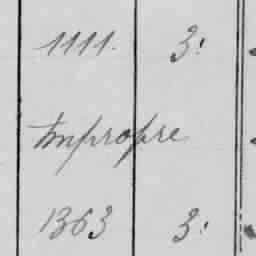 1111. 3.
Impropre
1363 3.